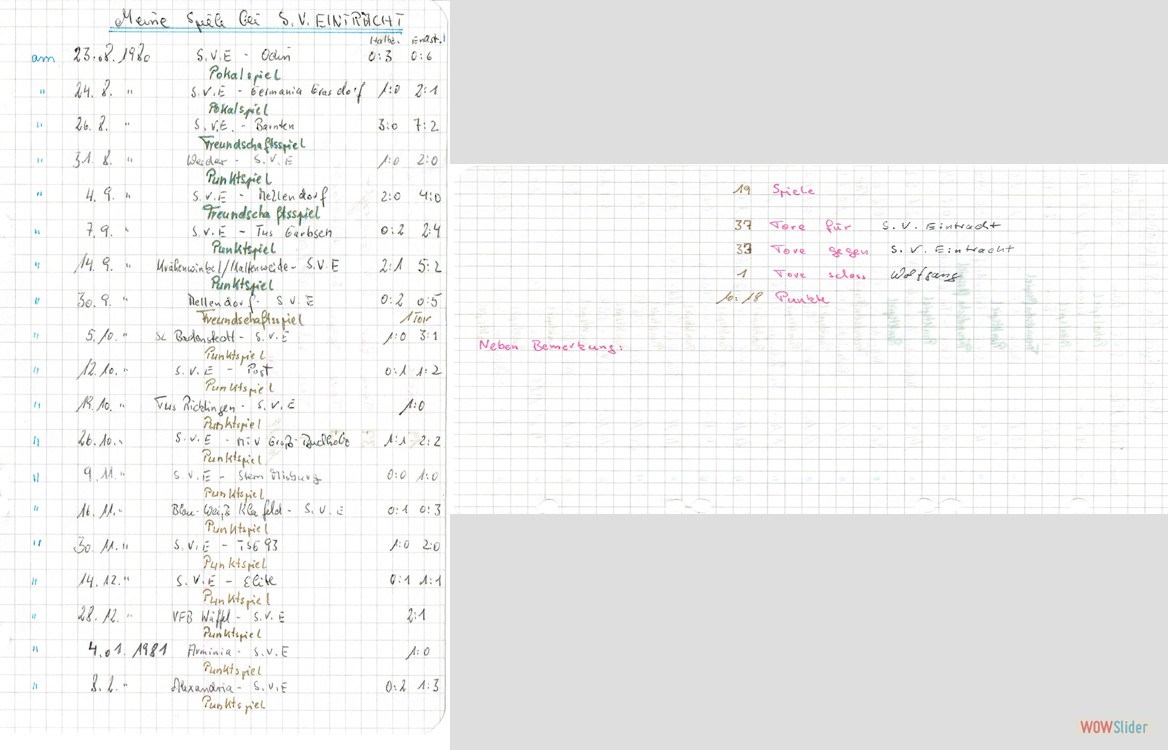 Meine Spiele bei S.V. EINTRACHT
Halbz. Endst.
am 23.08.1980 S.V.E - Odin 0:3 0:6
Pokalspiel
" 24.8. " S.V.E - Germania Grasdorf 1:0 2:1
Pokalspiel
" 26.8. " S.V.E. - Barnten 3:0 7:2
Freundschaftsspiel
" 31.8. " Werder - S.V.E 1:0 2:0
Punktspiel
" 4.9. " S.V.E - Mellendorf 2:0 4:0
Freundschaftsspiel
" 7.9. " S.V.E - Tus Garbsen 0:2 2:4
Punktspiel
" 14.9. " Krähenwinkel/Kaltenweide - S.V.E 2:1 5:2
Punktspiel
" 30.9. " Mellendorf - S.V.E 0:2 0:5
Freundschaftsspiel 1 Tor
" 5.10. " Sc Badenstedt - S.V.E 1:0 3:1
Punktspiel
" 12.10. " S.V.E - Post 0:1 1:2
Punktspiel
" 19.10. " Tus Ricklingen - S.V.E 1:0
Punktspiel
" 26.10. " S.V.E - MTV Groß-Buchholz 1:1 2:2
Punktspiel
" 9.11. " S.V.E - Stern Misburg 0:0 1:0
Punktspiel
" 16.11. " Blau-Weiß Kleefeld - S.V.E 0:1 0:3
Punktspiel
" 30.11. " S.V.E - TSG 93 1:0 2:0
Punktspiel
" 14.12. " S.V.E - Elite 0:1 1:1
Punktspiel
" 28.12. " VFB Wülfel - S.V.E 2:1
Punktspiel
" 4.01.1981 Arminia - S.V.E 1:0
Punktspiel
" 8.2. " Alexandria - S.V.E 0:2 1:3
Punktspiel
19 Spiele
37 Tore für S.V. Eintracht
33 Tore gegen S.V. Eintracht
1 Tore schoss Wolfgang
10:18 Punkte
Neben Bemerkung:
WOWSlider